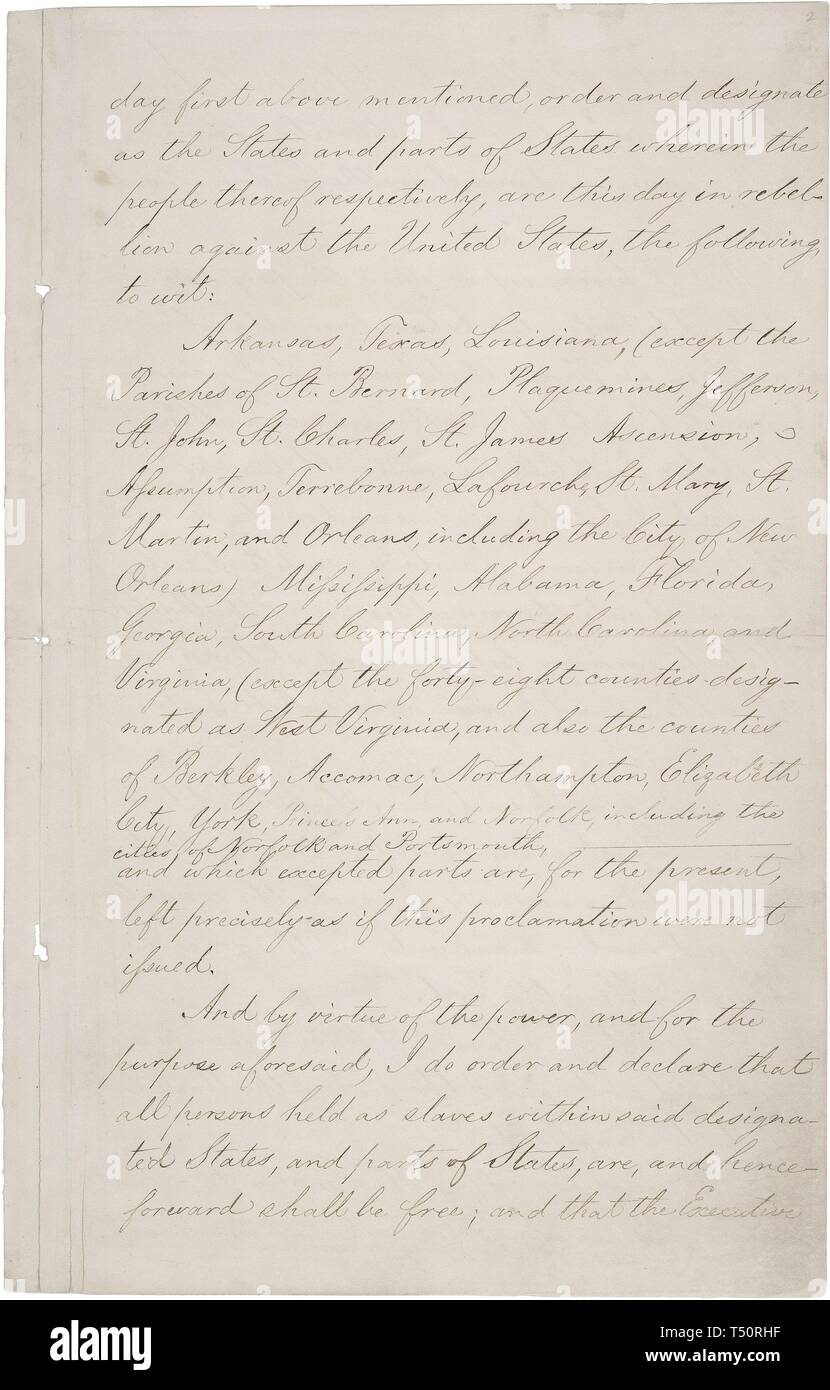 2
day first above mentioned, order and designate
as the States and parts of States wherein the
people thereof respectively, are this day in rebel-
lion against the United States, the following,
to wit:
Arkansas, Texas, Louisiana, (except the
Parishes of St. Bernard, Plaquemines, Jefferson,
St. John, St. Charles, St. James Ascension,
Assumption, Terrebonne, Lafourche, St. Mary, St.
Martin, and Orleans, including the City of New
Orleans) Mississippi, Alabama, Florida,
Georgia, South Carolina, North Carolina, and
Virginia, (except the forty-eight counties desig-
nated as West Virginia, and also the counties
of Berkley, Accomac, Northampton, Elizabeth
City, York, Princess Ann, and Norfolk, including the
cities of Norfolk and Portsmouth,
and which excepted parts are, for the present,
left precisely as if this proclamation were not
issued.
And by virtue of the power, and for the
purpose aforesaid, I do order and declare that
all persons held as slaves within said designa-
ted States, and parts of States, are, and hence-
forward shall be free; and that the Executive
alamy
alamy
Image ID: T50RHF
www.alamy.com